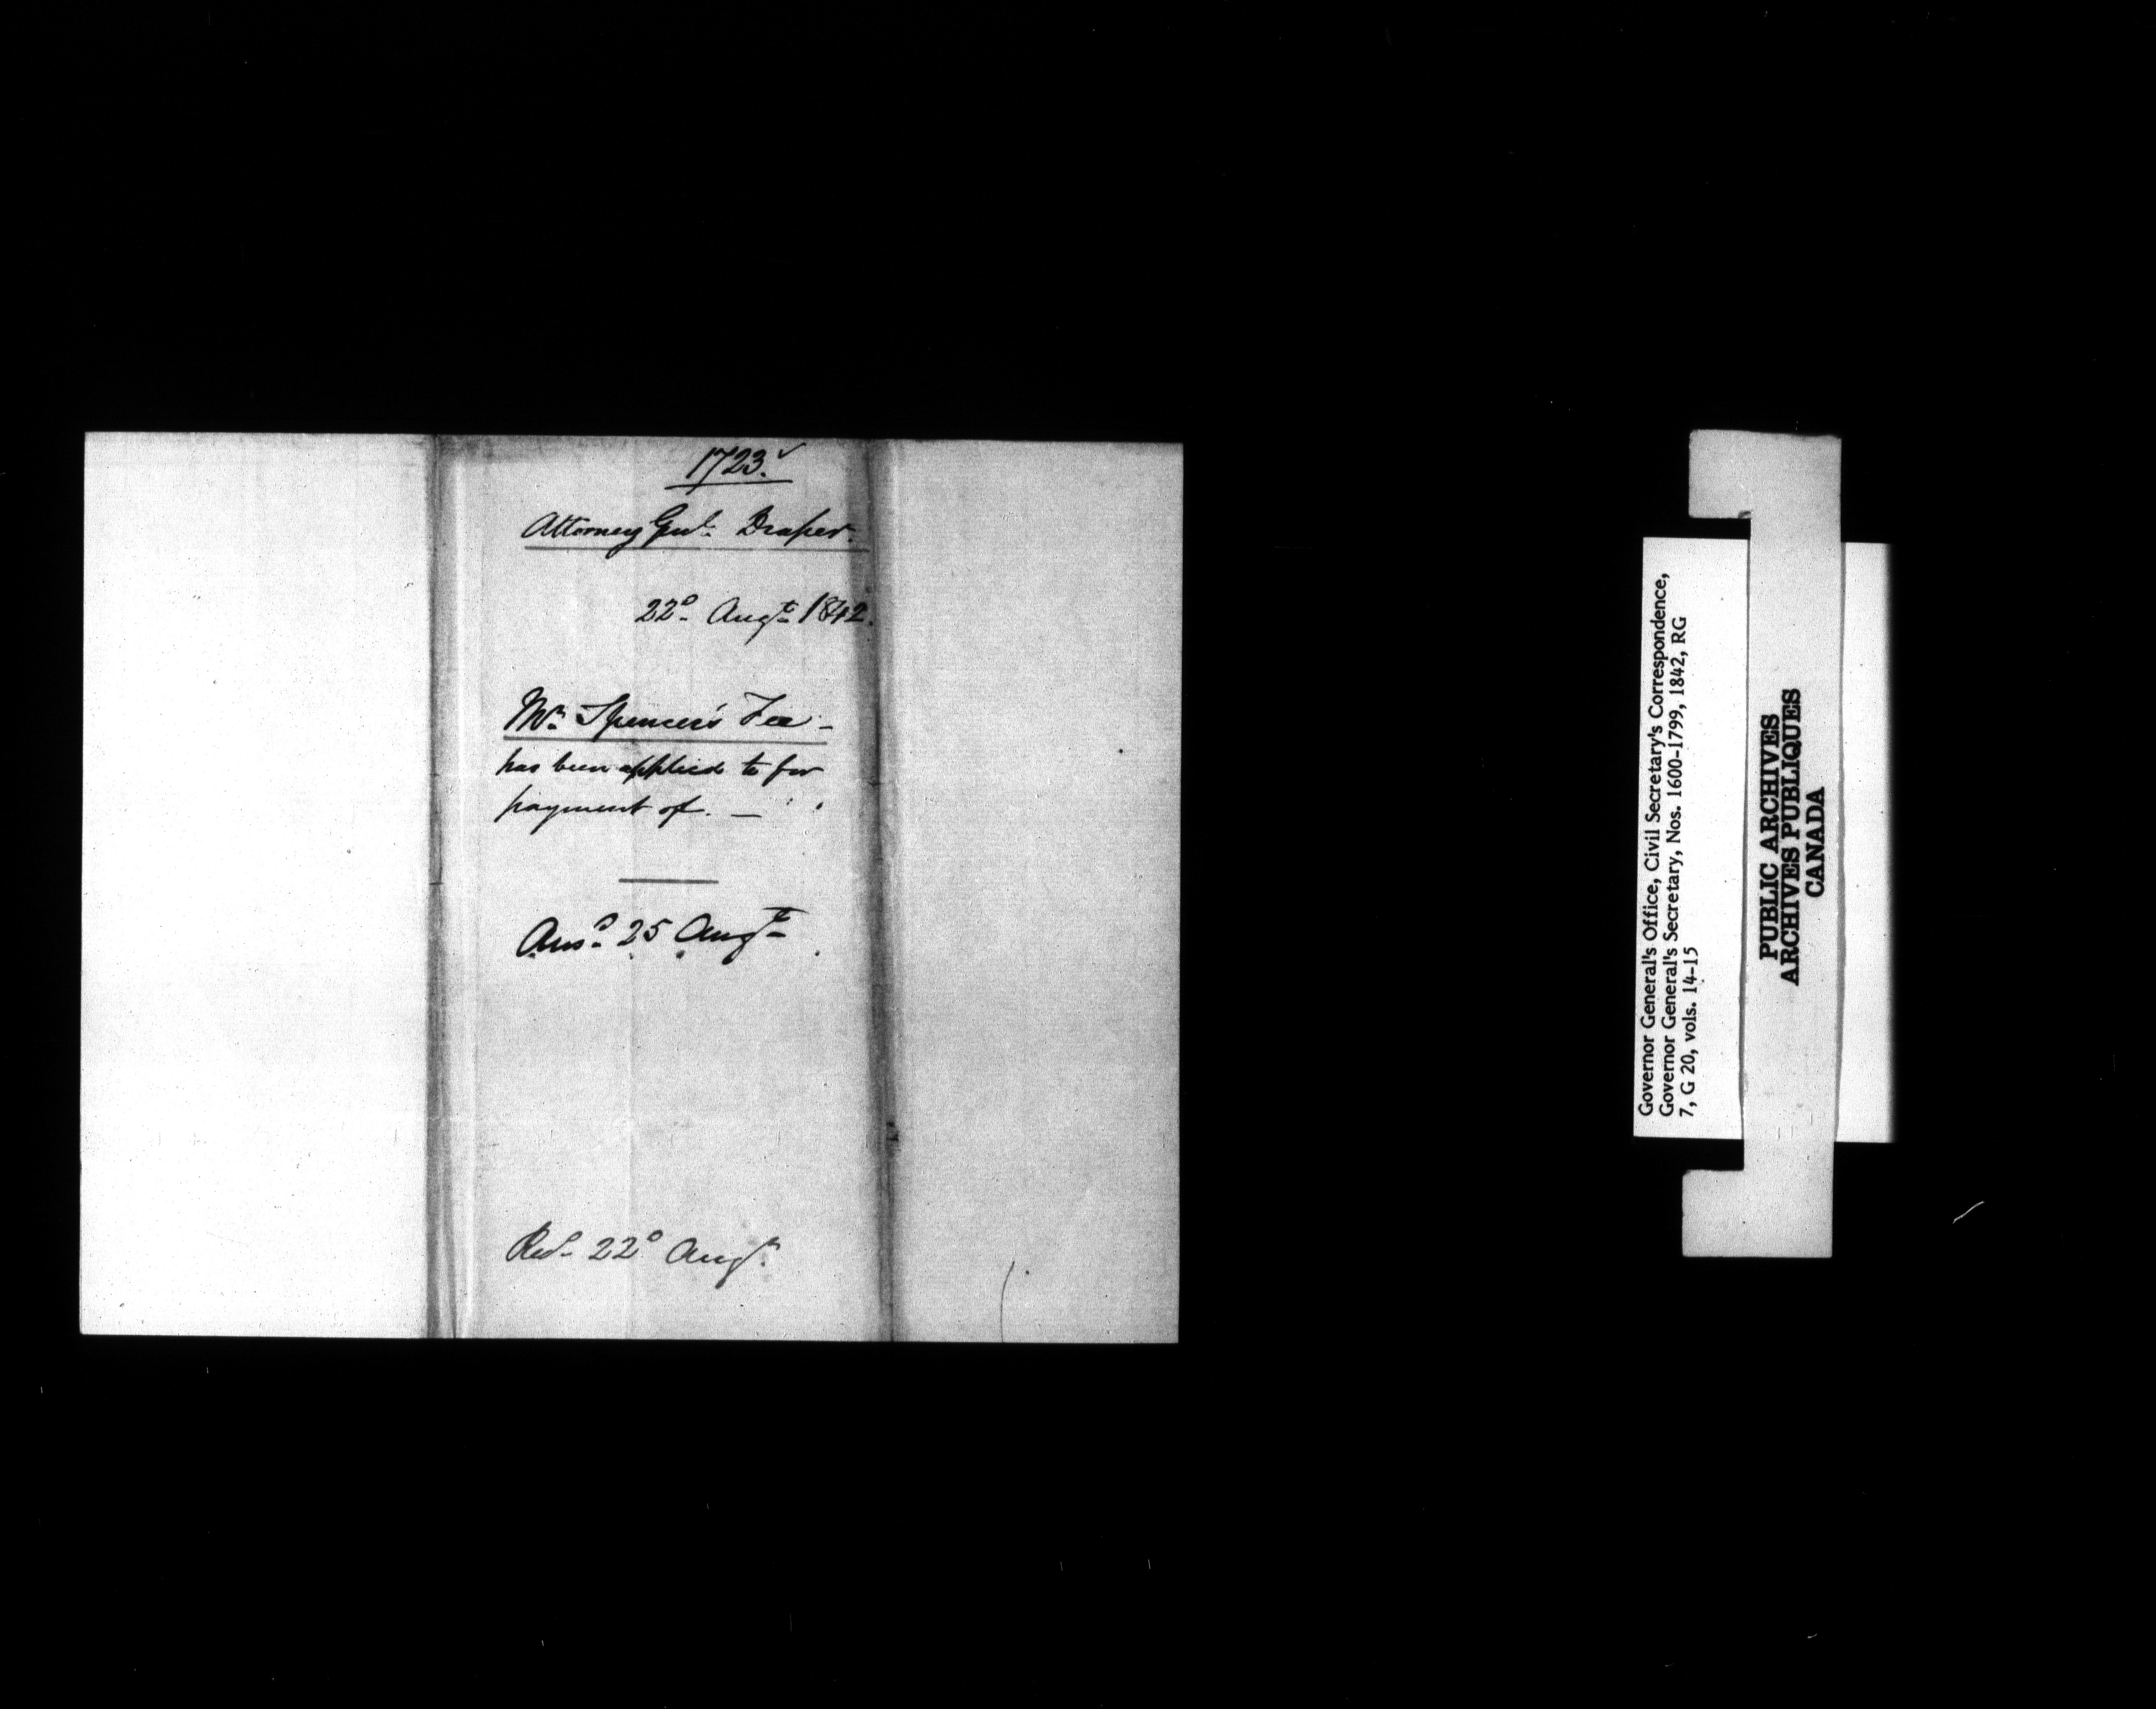 1723.
Attorney Genl. Draper.
22d Augt 1842.
Mr. Spencer's Fee -
has been applied to for
payment of. —
Ansd 25 Augt
Recd 22d Augt.
Governor General's Office, Civil Secretary's Correspondence,
Governor General's Secretary, Nos. 1600-1799, 1842, RG
7, G 20, vols. 14-15
PUBLIC ARCHIVES
ARCHIVES PUBLIQUES
CANADA